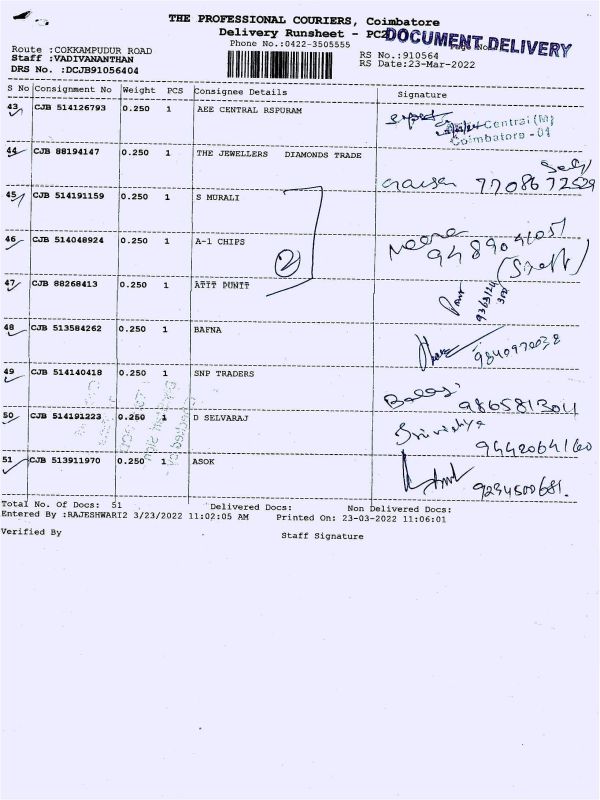 THE PROFESSIONAL COURIERS, Coimbatore
Delivery Runsheet - PC2
DOCUMENT DELIVERY
Phone No.:0422-3505555
Route :COKKAMPUDUR ROAD
Staff :VADIVANANTHAN
DRS No. :DCJB91056404
RS No.:910564
RS Date:23-Mar-2022
S No Consignment No Weight PCS Consignee Details Signature
43 CJB 514126793 0.250 1 AEE CENTRAL RSPURAM
Central (M)
Coimbatore - 01
44 CJB 88194147 0.250 1 THE JEWELLERS DIAMONDS TRADE
7708672529
45 CJB 514191159 0.250 1 S MURALI
46 CJB 514048924 0.250 1 A-1 CHIPS
2
47 CJB 88268413 0.250 1 ATIT PUNIT
48 CJB 513584262 0.250 1 BAFNA
9840970038
49 CJB 514140418 0.250 1 SNP TRADERS
50 CJB 514191223 0.250 1 D SELVARAJ
9442064160
51 CJB 513911970 0.250 1 ASOK
9234500681.
Total No. Of Docs: 51 Delivered Docs: Non Delivered Docs:
Entered By :RAJESHWARI2 3/23/2022 11:02:05 AM Printed On: 23-03-2022 11:06:01
Verified By Staff Signature